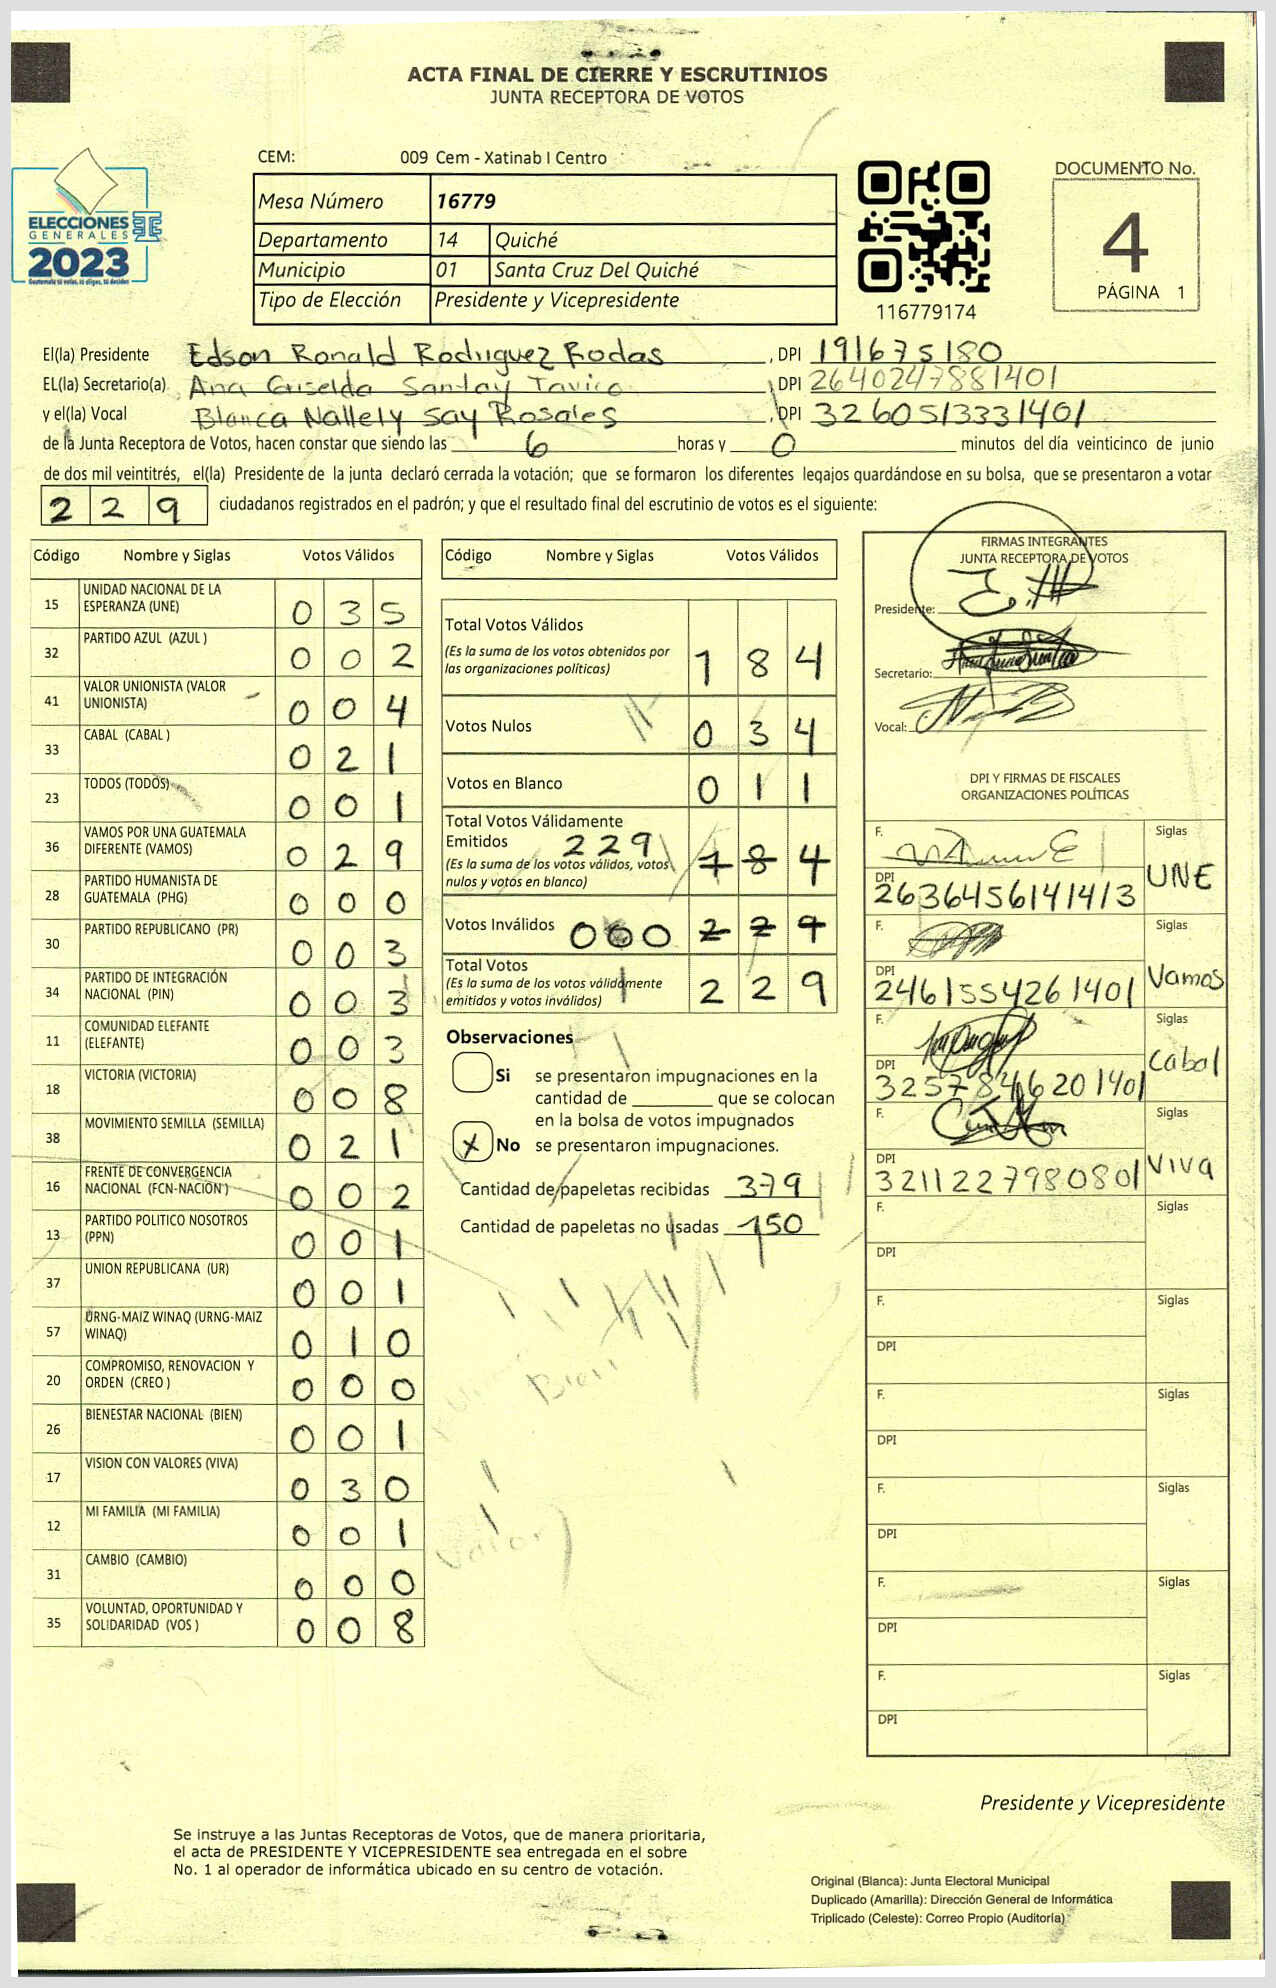 ACTA FINAL DE CIERRE Y ESCRUTINIOS
JUNTA RECEPTORA DE VOTOS
CEM: 009 Cem - Xatinab I Centro
DOCUMENTO No.
4
PÁGINA 1
ELECCIONES
GENERALES
2023
Guatemala tú votas, tú eliges, tú decides
Mesa Número 16779
Departamento 14 Quiché
Municipio 01 Santa Cruz Del Quiché
Tipo de Elección Presidente y Vicepresidente
116779174
El(la) Presidente Edson Ronald Rodriguez Rodas, DPI 191675180
EL(la) Secretario(a) Ana Griselda Santay Tavico, DPI 2640247881401
y el(la) Vocal Blanca Nallely Say Rosales, DPI 3260513331401
de la Junta Receptora de Votos, hacen constar que siendo las 6 horas y 0 minutos del día veinticinco de junio
de dos mil veintitrés, el(la) Presidente de la junta declaró cerrada la votación; que se formaron los diferentes legajos guardándose en su bolsa, que se presentaron a votar
229 ciudadanos registrados en el padrón; y que el resultado final del escrutinio de votos es el siguiente:
Código Nombre y Siglas Votos Válidos
15 UNIDAD NACIONAL DE LA ESPERANZA (UNE) 035
32 PARTIDO AZUL (AZUL ) 002
41 VALOR UNIONISTA (VALOR UNIONISTA) 004
33 CABAL (CABAL ) 021
23 TODOS (TODOS) 001
36 VAMOS POR UNA GUATEMALA DIFERENTE (VAMOS) 029
28 PARTIDO HUMANISTA DE GUATEMALA (PHG) 000
30 PARTIDO REPUBLICANO (PR) 003
34 PARTIDO DE INTEGRACIÓN NACIONAL (PIN) 003
11 COMUNIDAD ELEFANTE (ELEFANTE) 003
18 VICTORIA (VICTORIA) 008
38 MOVIMIENTO SEMILLA (SEMILLA) 021
16 FRENTE DE CONVERGENCIA NACIONAL (FCN-NACION ) 002
13 PARTIDO POLITICO NOSOTROS (PPN) 001
37 UNION REPUBLICANA (UR) 001
57 URNG-MAIZ WINAQ (URNG-MAIZ WINAQ) 010
20 COMPROMISO, RENOVACION Y ORDEN (CREO ) 000
26 BIENESTAR NACIONAL (BIEN) 001
17 VISION CON VALORES (VIVA) 030
12 MI FAMILIA (MI FAMILIA) 001
31 CAMBIO (CAMBIO) 000
35 VOLUNTAD, OPORTUNIDAD Y SOLIDARIDAD (VOS ) 008
Código Nombre y Siglas Votos Válidos
Total Votos Válidos
(Es la suma de los votos obtenidos por
las organizaciones políticas) 184
Votos Nulos 034
Votos en Blanco 011
Total Votos Válidamente
Emitidos 229 184
(Es la suma de los votos válidos, votos
nulos y votos en blanco)
Votos Inválidos 000 229
Total Votos
(Es la suma de los votos válidamente
emitidos y votos inválidos) 229
Observaciones
Si se presentaron impugnaciones en la
cantidad de ________ que se colocan
en la bolsa de votos impugnados
X No se presentaron impugnaciones.
Cantidad de papeletas recibidas 379
Cantidad de papeletas no usadas 150
Bien
Valor
FIRMAS INTEGRANTES
JUNTA RECEPTORA DE VOTOS
Presidente:
Secretario:
Vocal:
DPI Y FIRMAS DE FISCALES
ORGANIZACIONES POLÍTICAS
F. Siglas
DPI 2636456141413 UNE
F. Siglas
DPI 2461554261401 Vamos
F. Siglas
DPI 3257846201401 Cabal
F. Siglas
DPI 3211227980801 VIVA
F. Siglas
DPI
F. Siglas
DPI
F. Siglas
DPI
F. Siglas
DPI
F. Siglas
DPI
F. Siglas
DPI
Presidente y Vicepresidente
Se instruye a las Juntas Receptoras de Votos, que de manera prioritaria,
el acta de PRESIDENTE Y VICEPRESIDENTE sea entregada en el sobre
No. 1 al operador de informática ubicado en su centro de votación.
Original (Blanca): Junta Electoral Municipal
Duplicado (Amarilla): Dirección General de Informática
Triplicado (Celeste): Correo Propio (Auditoría)